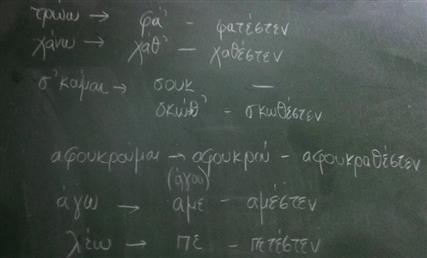 τρώω → φά' - φατέστεν
χάνω → χάθ' - χαθέστεν
σ'κούμαι → σουκ —
σκώθ' - σκωθέστεν
αφουκρούμαι → αφουκρού - αφουκραθέστεν
(άγου)
άγω → αμε - αμέστεν
λέω → πε - πετέστεν